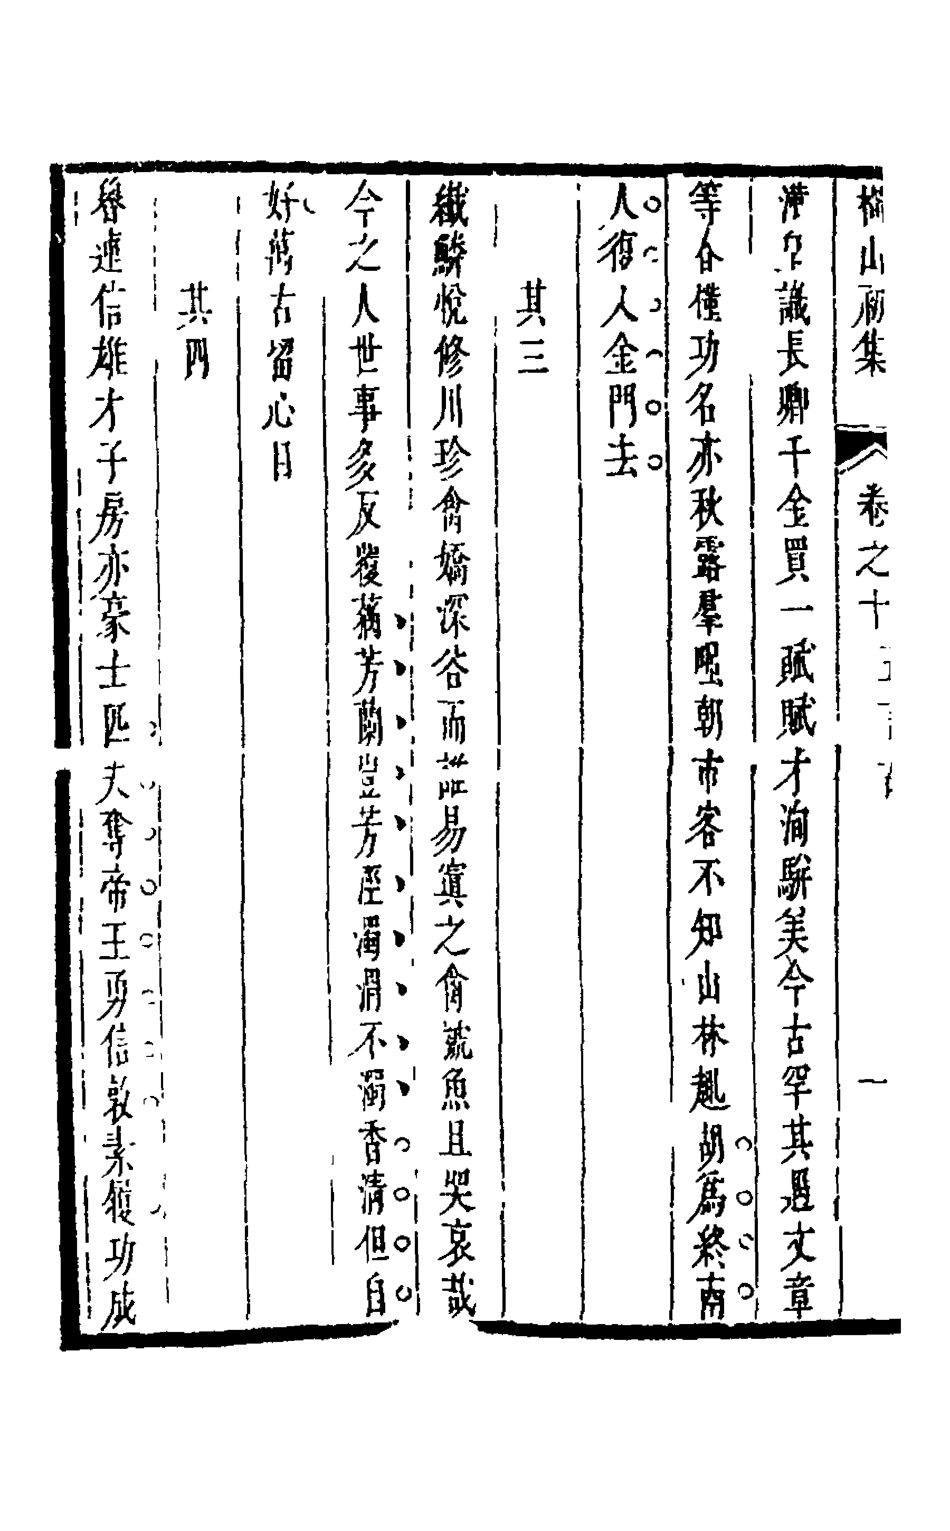 山初集　卷之十五言古　一
漢皇識長卿千金買一賦賦才洵駢美今古罕其遇文章
等谷僅功名亦秋露羣嗤朝市客不知山林趣胡爲終南
人復入金門去
其三
纖鱗悅修川珍禽嬌深谷而誰易寘之禽號魚且哭哀哉
今之人世事多反覆蕕芳蘭豈芳涇濁渭不濁香清但自
好萬古留心目
其四
魯連信雄才子房亦豪士匹夫奪帝王勇信敦素履功成